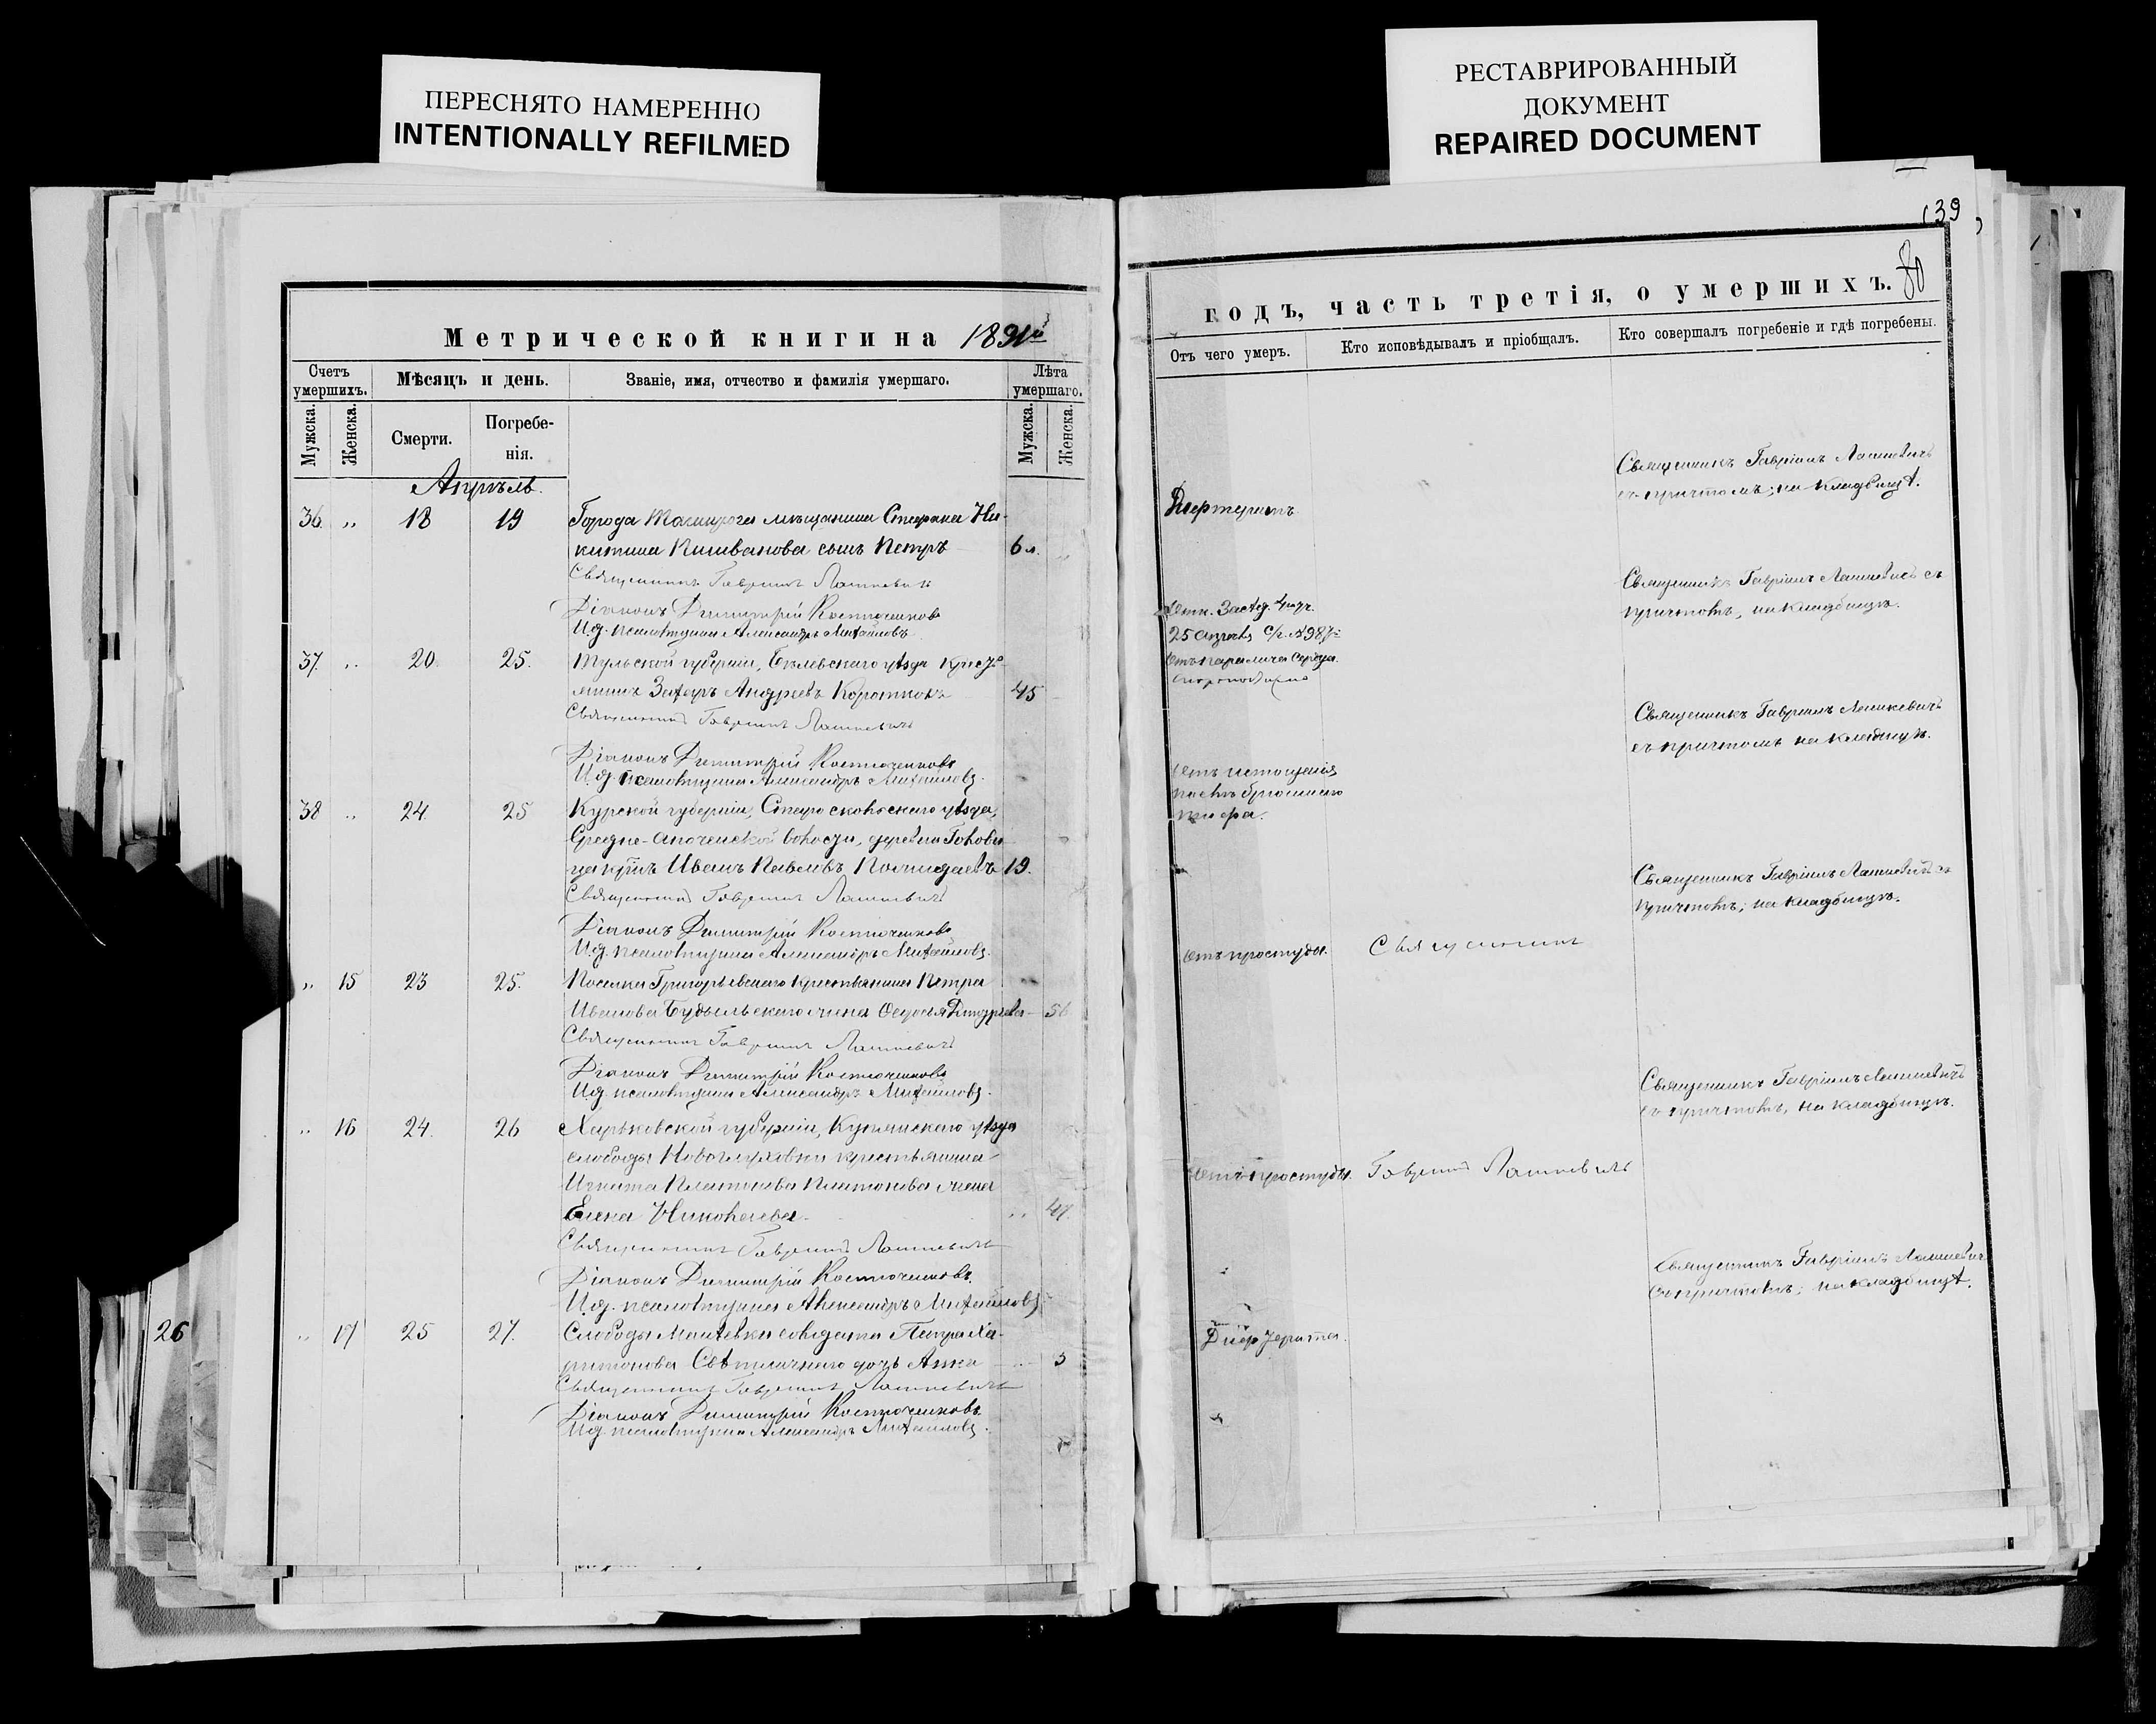 ПЕРЕСНЯТО НАМЕРЕННО
INTENTIONALLY REFILMED
РЕСТАВРИРОВАННЫЙ
ДОКУМЕНТ
REPAIRED DOCUMENT
139
80
Метрической книги на 1891й
Счетъ умершихъ.
Мѣсяцъ и день.
Званіе, имя, отчество и фамилія умершаго.
Лѣта умершаго.
Мужска.
Женска.
Смерти.
Погребе-
нія.
Мужска.
Женска.
Апрѣль.
36 „ 18 19 Города Таганрога мѣщанина Стефана Ни-
китина сынъ Петръ 6 л.
Священникъ Гавріилъ Лашкевичъ
Діаконъ Димитрій Костюченковъ
И.д. псаломщика Александръ Михайловъ
37. „ 20. 25. Тульской губерніи, Бѣлевскаго уѣзда крестья-
нинъ Захаръ Андреевъ Коротковъ 45
Священникъ Гавріилъ Лашкевичъ
Діаконъ Димитрій Костюченковъ
И.д. псаломщика Александръ Михайловъ.
38 „ 24 25 Курской губерніи, Старооскольскаго уѣзда,
Средне-Апоченской волости, деревни
Иванъ Павловъ 19.
Священникъ Гавріилъ Лашкевичъ
Діаконъ Димитрій Костюченковъ
И.д. псаломщика Александръ Михайловъ.
„ 15 23 25. Поселка Григорьевскаго крестьянина Петра
Иванова жена 56
Священникъ Гавріилъ Лашкевичъ
Діаконъ Димитрій Костюченковъ
И.д. псаломщика Александръ Михайловъ.
„ 16 24. 26 Харьковской губерніи, Купянскаго уѣзда
слободы Новоглуховки крестьянина
Игната Платонова жена
Елена Николаева „ 47.
Священникъ Гавріилъ Лашкевичъ
Діаконъ Димитрій Костюченковъ.
И.д. псаломщика Александръ Михайловъ
26
„ 17 25 27. Слободы солдата Петра Ха-
ритонова Свѣтличнаго дочь Анна „ 3
Священникъ Гавріилъ Лашкевичъ
Діаконъ Димитрій Костюченковъ
И.д. псаломщика Александръ Михайловъ.
годъ, часть третія, о умершихъ.
Отъ чего умеръ.
Кто исповѣдывалъ и пріобщалъ.
Кто совершалъ погребеніе и гдѣ погребены.
Священникъ Гавріилъ Лашкевичъ
съ причтомъ; на кладбищѣ.
Священникъ Гавріилъ Лашкевичъ съ
причтомъ, на кладбищѣ.
25 апрѣля № 987
Отъ паралича сердца.
Священникъ Гавріилъ Лашкевичъ
съ причтомъ на кладбищѣ.
Отъ истощенія
послѣ брюшнаго
тифа.
Священникъ Гавріилъ Лашкевичъ съ
причтомъ; на кладбищѣ.
Отъ простуды. Священникъ
Священникъ Гавріилъ Лашкевичъ
съ причтомъ, на кладбищѣ.
Отъ простуды. Гавріилъ Лашкевичъ
Священникъ Гавріилъ Лашкевичъ
съ причтомъ; на кладбищѣ.